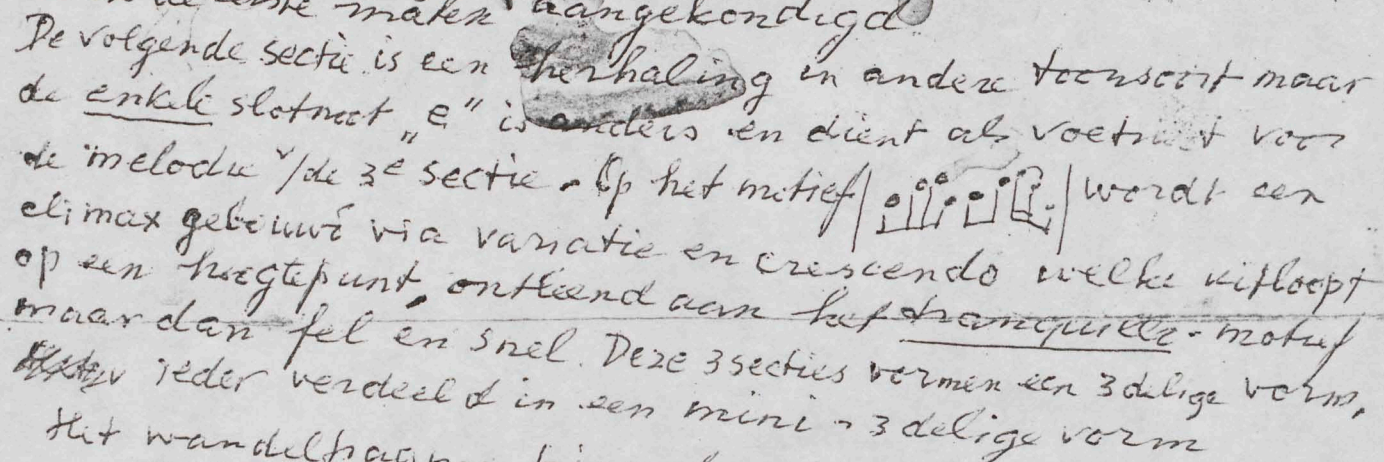 de eerste maten aangekondigd
De volgende sectie is een herhaling in andere toonsoort maar
de enkele slotnoot „e” is anders en dient als voetnoot voor
de melodie v/de 3e sectie. Op het motief | | wordt een
climax gebouwd via variatie en crescendo welke uitloopt
op een hoogtepunt, ontleend aan het tranquille-motief
maar dan fel en snel. Deze 3 secties vormen een 3 delige vorm,
ieder verdeeld in een mini-3 delige vorm
Het